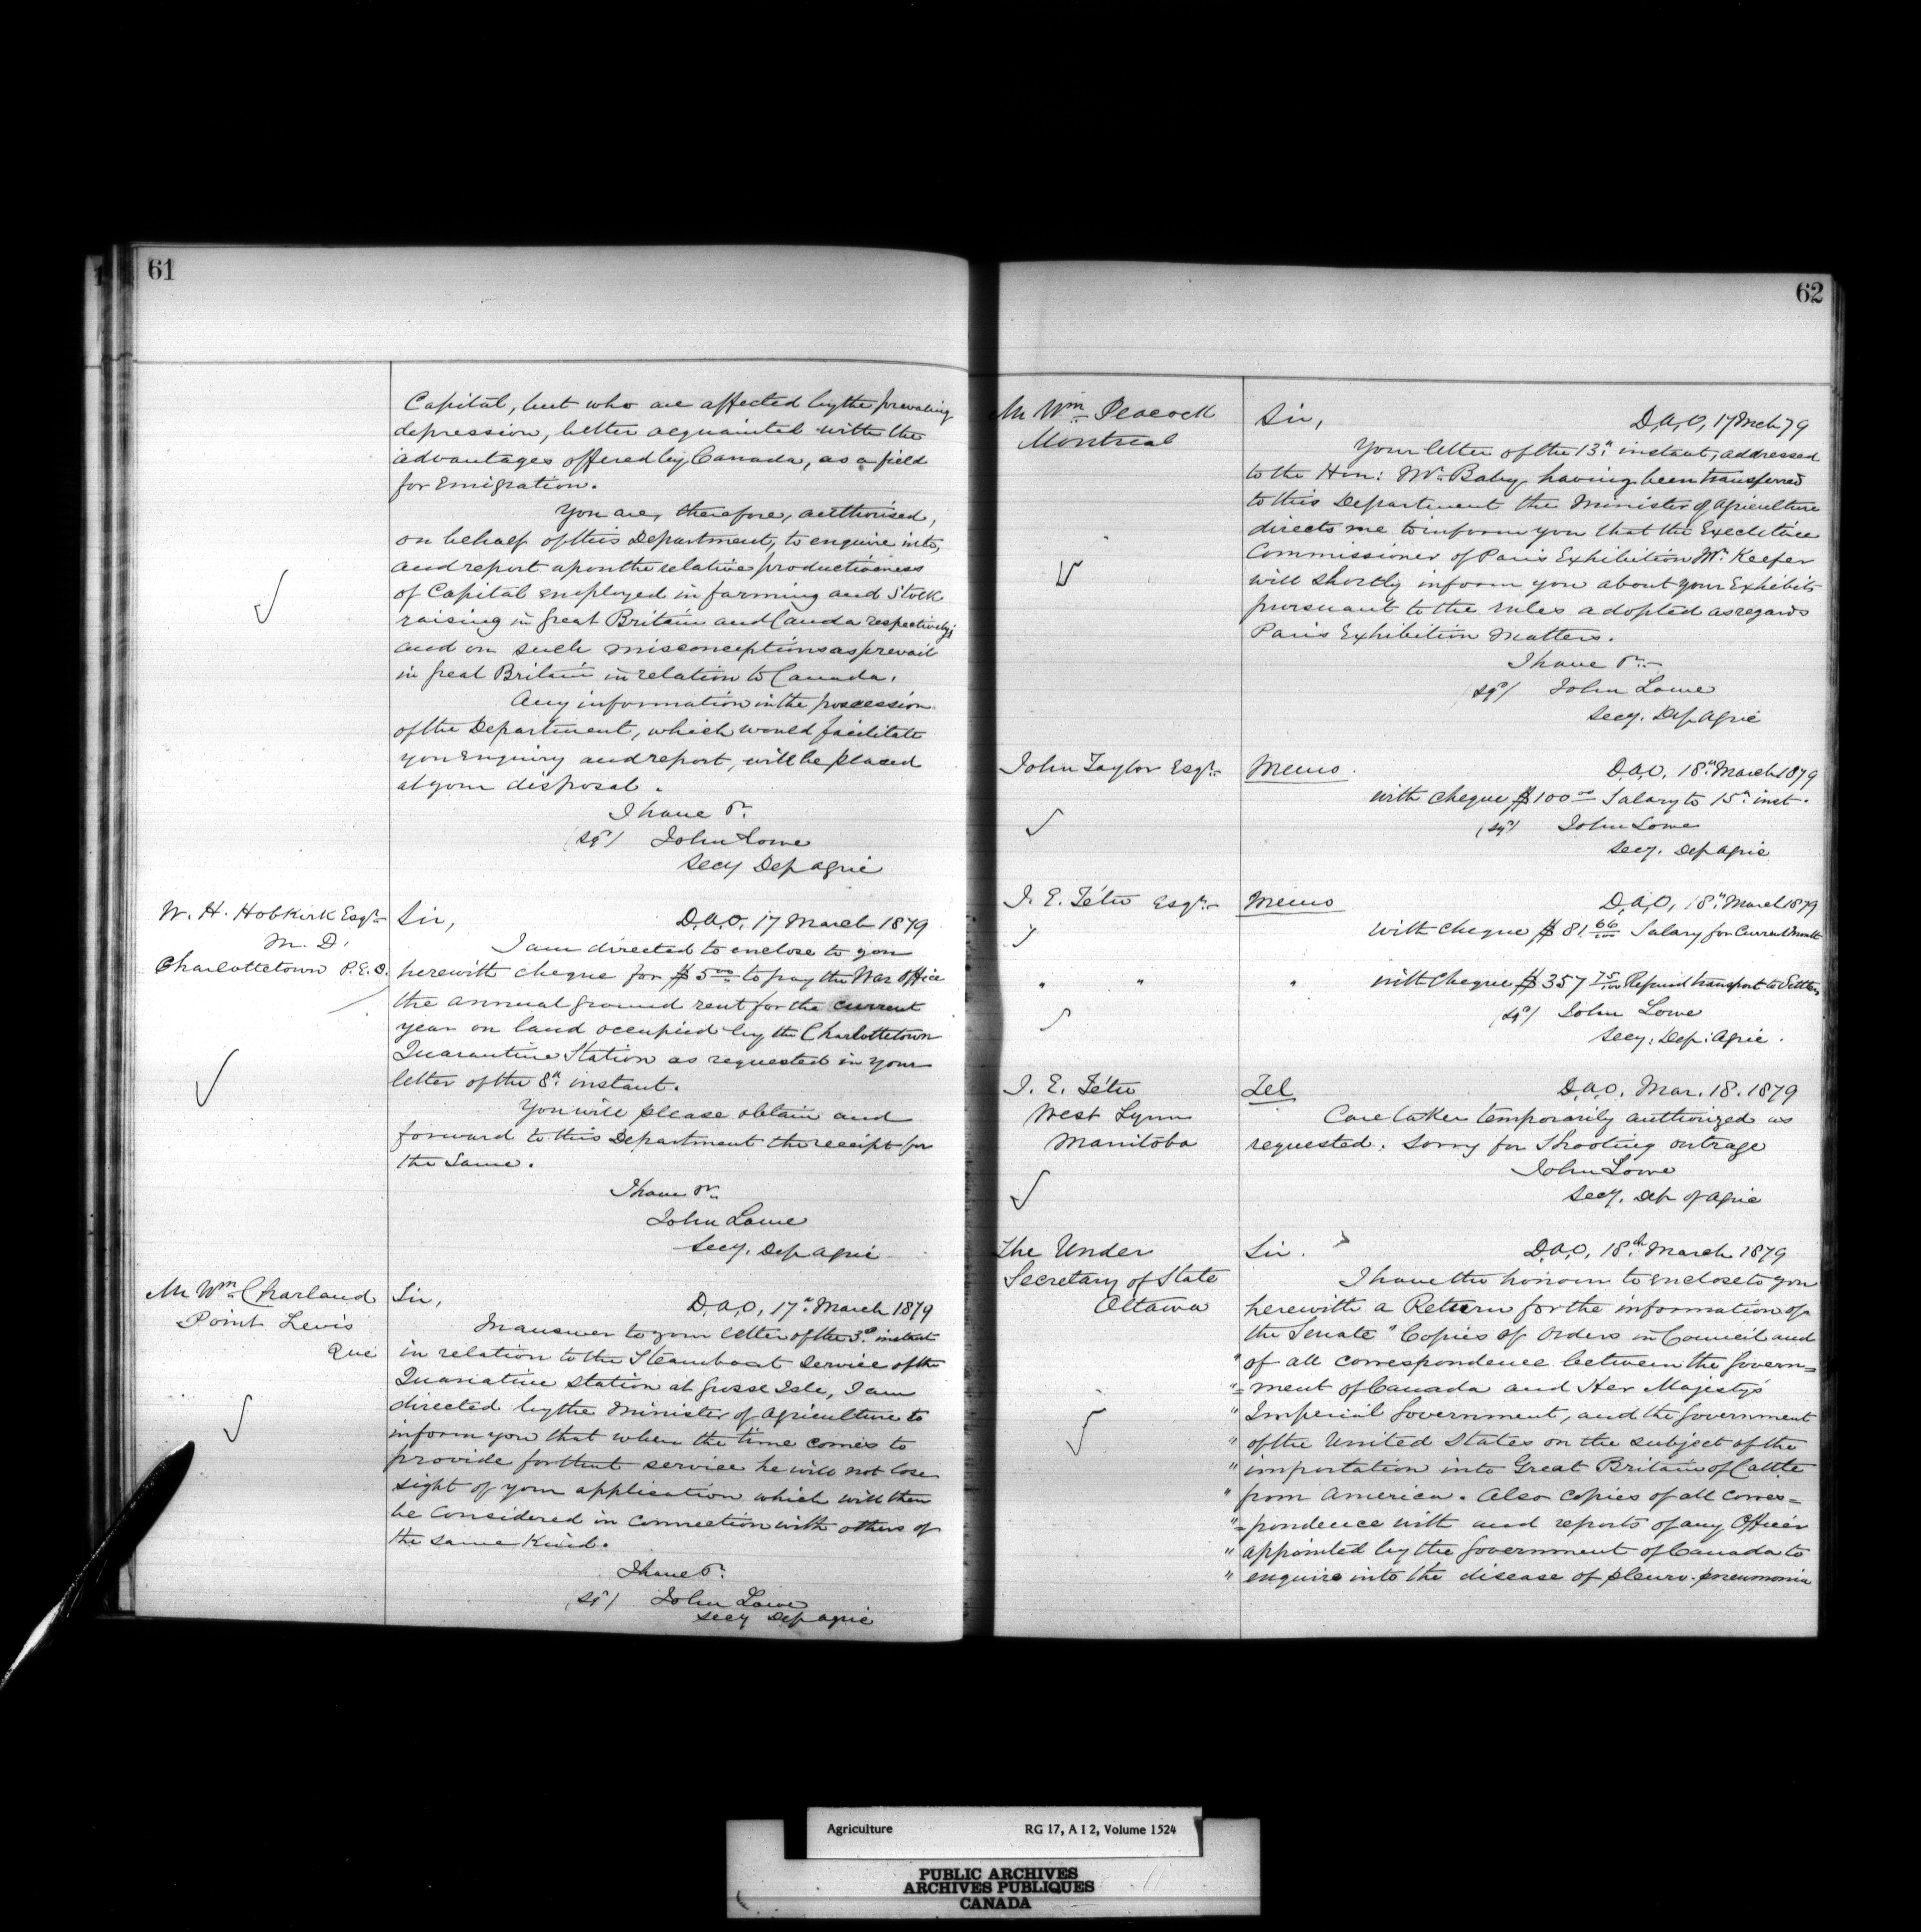 61
Capital, but who are affected by the prevailing
depression, better acquainted with the
advantages offered by Canada, as a field
for Emigration.
You are, therefore, authorised,
on behalf of this Department, to enquire into,
and report upon the relative productiveness
of Capital employed in farming and Stock
raising in Great Britain and Canada respectively;
and on such misconceptions as prevail
in Great Britain in relation to Canada.
Any information in the possession
of the Department, which would facilitate
your Enquiry and report, will be placed
at your disposal.
I have &c.
(sgd) John Lowe
Secy Dep Agric
W. H. Hobkirk Esqr.
M. D.
Charlottetown P.E.I.
Sir, D.A.O, 17 March 1879
I am directed to enclose to you
herewith cheque for $5 00/00 to pay the War Office
the annual ground rent for the current
year on land occupied by the Charlottetown
Quarantine Station as requested in your
letter of the 8th instant.
You will please obtain and
forward to this Department the receipt for
the same.
I have &c.
John Lowe
Secy. Dep Agric
Mr Wm Charland
Point Levis
Que
Sir, D.A.O, 17th March 1879
In answer to your letter of the 3rd instant
in relation to the Steamboat Service of the
Quarantine Station at Grosse Isle, I am
directed by the Minister of Agriculture to
inform you that when the time comes to
provide for that service he will not lose
sight of your application which will then
be considered in connection with others of
the same kind.
I have &c.
(sgd) John Lowe
Secy Dep Agric
62
Mr Wm Peacock
Montreal
Sir, D.A.O, 17 Mch 79
Your letter of the 13th instant, addressed
to the Hon: Mr. Baby having been transferred
to this Department the Minister of Agriculture
directs me to inform you that the Executive
Commissioner of Paris Exhibition Mr. Keefer
will shortly inform you about your Exhibits
pursuant to the rules adopted as regards
Paris Exhibition Matters.
I have &c.
(sgd) John Lowe
Secy. Dep Agric
John Taylor Esqr.
Memo. D.A.O, 18th March 1879
with cheque $100 00 Salary to 15th inst.
(sgd) John Lowe
Secy. Dep Agric
J. E. Tétu Esqr.
Memo D.A.O, 18th March 1879
with cheque $81. 66/100 Salary for Current month
" " " with cheque $357 75/100 Refund transport to Settlers
(sgd) John Lowe
Secy. Dep: Agric.
J. E. Tétu
West Lynn
Manitoba
Tel D.A.O, Mar. 18. 1879
Care taker temporarily authorized as
requested. Sorry for Shooting outrage
John Lowe
Secy. Dep of Agric
The Under
Secretary of State
Ottawa
Sir. D.A.O, 18th March 1879
I have the honour to enclose to you
herewith a Return for the information of
the Senate "Copies of Orders in Council and
" of all correspondence between the Govern=
"=ment of Canada and Her Majesty's
" Imperial Government, and the Government
" of the United States on the subject of the
" importation into Great Britain of Cattle
" from America. Also copies of all corres=
"=pondence with and reports of any Officer
" appointed by the Government of Canada to
" enquire into the disease of pleuro-pneumonia
Agriculture RG 17, A I 2, Volume 1524
PUBLIC ARCHIVES
ARCHIVES PUBLIQUES
CANADA